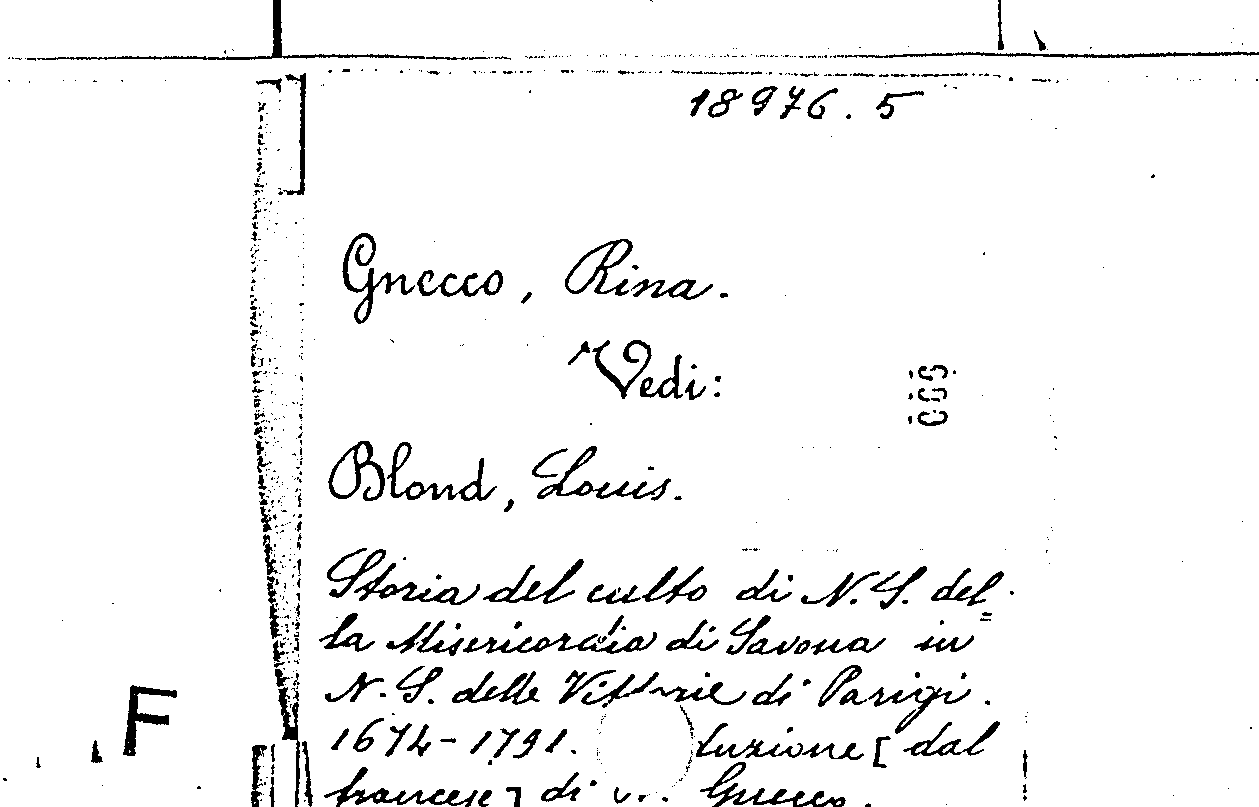 18976.5
Gnecco, Rina.
Vedi:
005
Blond, Louis.
Storia del culto di N. S. del=
la Misericordia di Savona in
N. S. delle Vittorie di Parigi.
1674-1791. luzione [dal
francese] di Gnecco.
F